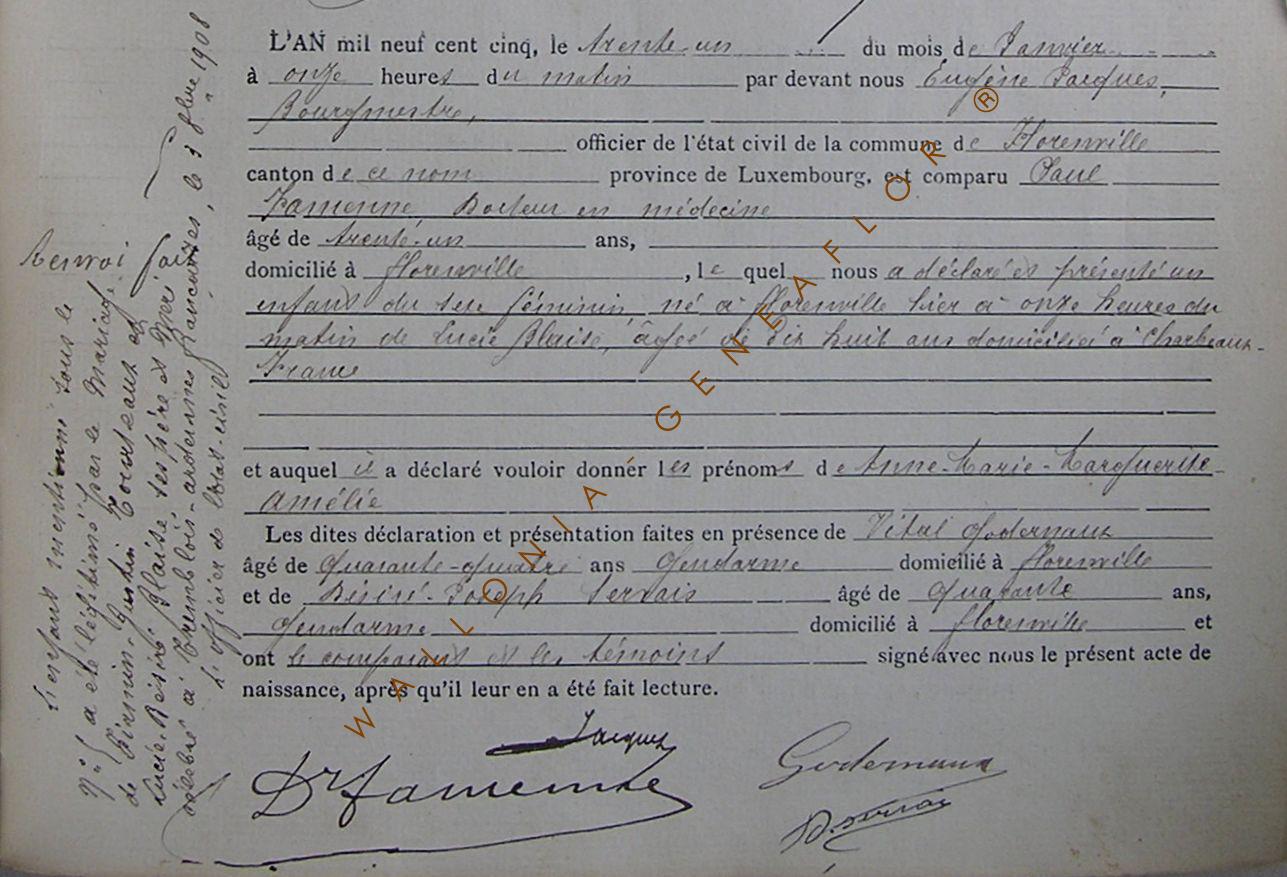 L'AN mil neuf cent cinq, le trente-un du mois de Janvier
à onze heures du matin par devant nous Eugène Jacques,
Bourgmestre,
officier de l'état civil de la commune de Florenville
canton de ce nom province de Luxembourg, est comparu Paul
Famenne, Docteur en médecine
âgé de trente-un ans,
domicilié à Florenville, lequel nous a déclaré et présenté un
enfant du sexe féminin, né à Florenville hier à onze heures du
matin de Lucie Blaise, âgée de dix huit ans domiciliée à Charbeaux-
France
et auquel il a déclaré vouloir donner les prénoms de Anne-Marie-Marguerite-
Amélie
Les dites déclaration et présentation faites en présence de Vital Godernaux
âgé de Quarante-quatre ans Gendarme domicilié à Florenville
et de Désiré-Joseph Servais âgé de Quarante ans,
Gendarme domicilié à Florenville et
ont le comparant et les témoins signé avec nous le présent acte de
naissance, après qu'il leur en a été fait lecture.
Jacques
Dr Famenne
Godernaux
D. Servais
L'enfant mentionné sous le
n° a été légitimé par le Mariage
de Firmin-Justin et
Lucie-Désirée Blaise ses père et mère
célébré à Tremblois-ardennes françaises, le 3 1908
L'officier de l'état-civil
Renvoi
WALLONIA GENEAFLOR ®